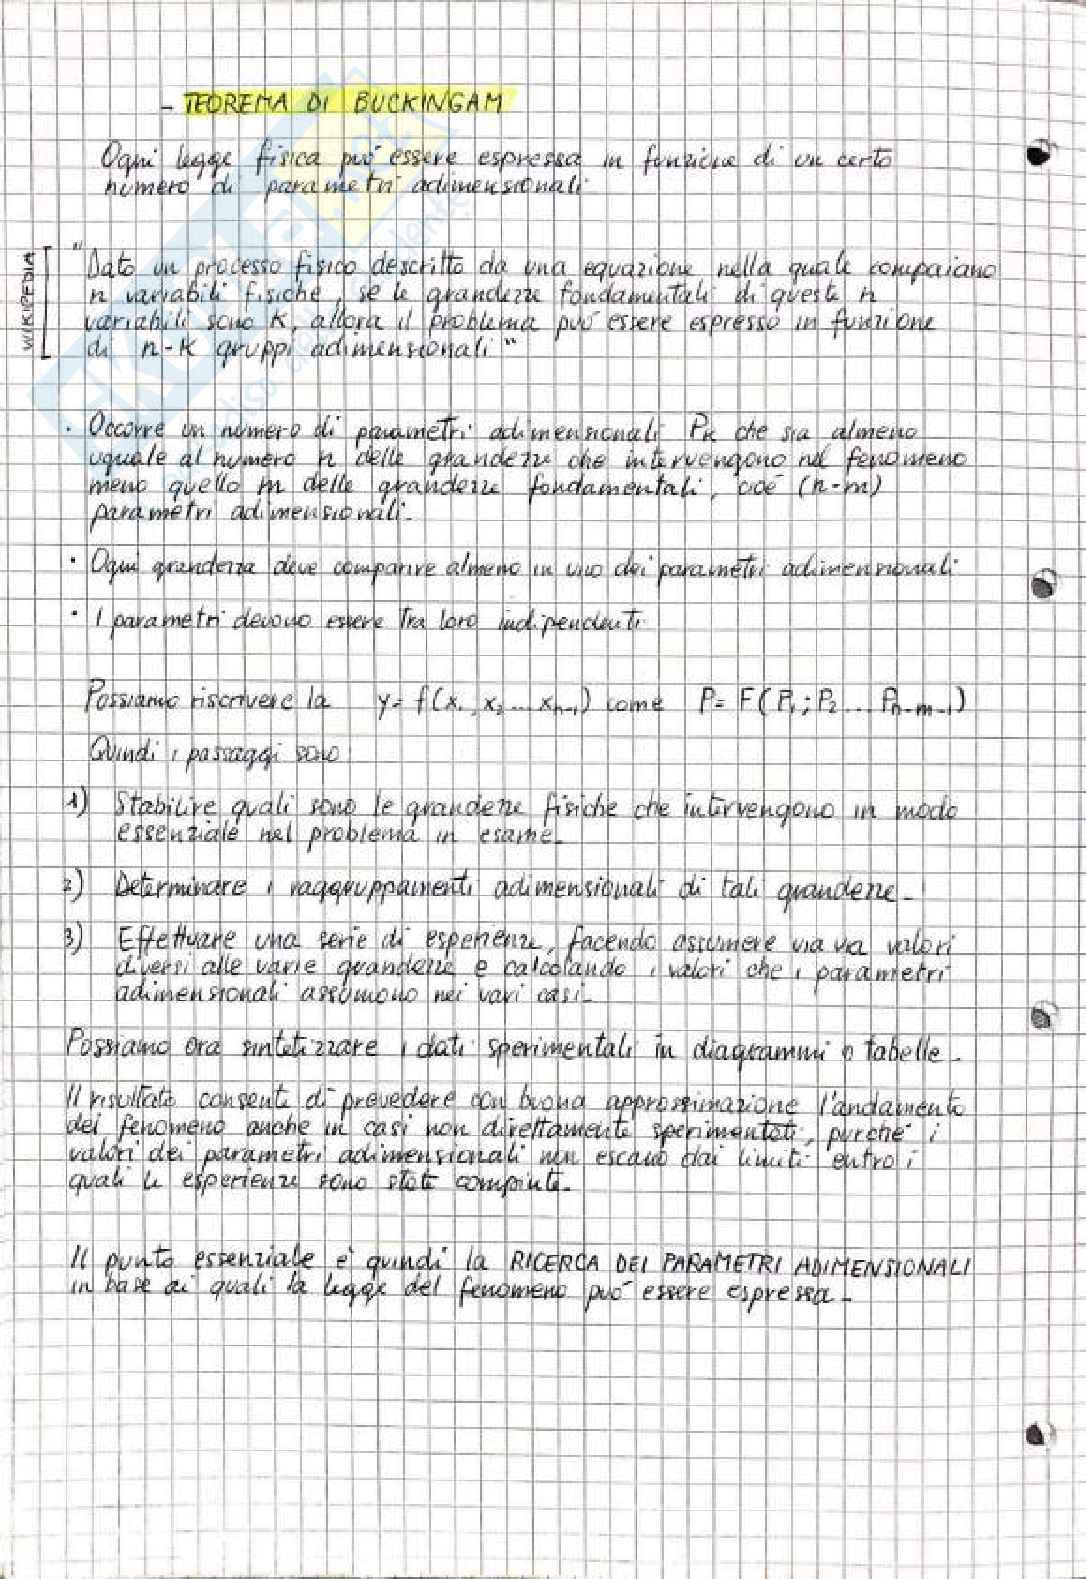 - TEOREMA DI BUCKINGAM
Ogni legge fisica può essere espressa in funzione di un certo
numero di parametri adimensionali
WIKIPEDIA
"Dato un processo fisico descritto da una equazione nella quale compaiano
n variabili fisiche, se le grandezze fondamentali di queste n
variabili sono K, allora il problema può essere espresso in funzione
di n-K gruppi adimensionali"
· Occorre un numero di parametri adimensionali PK che sia almeno
uguale al numero n delle grandezze che intervengono nel fenomeno
meno quello m delle grandezze fondamentali, cioè (n-m)
parametri adimensionali.
· Ogni grandezza deve comparire almeno in uno dei parametri adimensionali
· I parametri devono essere tra loro indipendenti
Possiamo riscrivere la y= f(x₁, x₂ ... xₙ₋₁) come P= F(P₁; P₂ ... Pₙ₋ₘ₋₁)
Quindi i passaggi sono:
1) Stabilire quali sono le grandezze fisiche che intervengono in modo
essenziale nel problema in esame.
2) Determinare i raggruppamenti adimensionali di tali grandezze.
3) Effettuare una serie di esperienze, facendo assumere via via valori
diversi alle varie grandezze e calcolando i valori che i parametri
adimensionali assumono nei vari casi.
Possiamo ora sintetizzare i dati sperimentali in diagrammi o tabelle.
Il risultato consente di prevedere con buona approssimazione l'andamento
del fenomeno anche in casi non direttamente sperimentati, purché i
valori dei parametri adimensionali non escano dai limiti entro i
quali le esperienze sono state compiute.
Il punto essenziale è quindi la RICERCA DEI PARAMETRI ADIMENSIONALI
in base ai quali la legge del fenomeno può essere espressa.